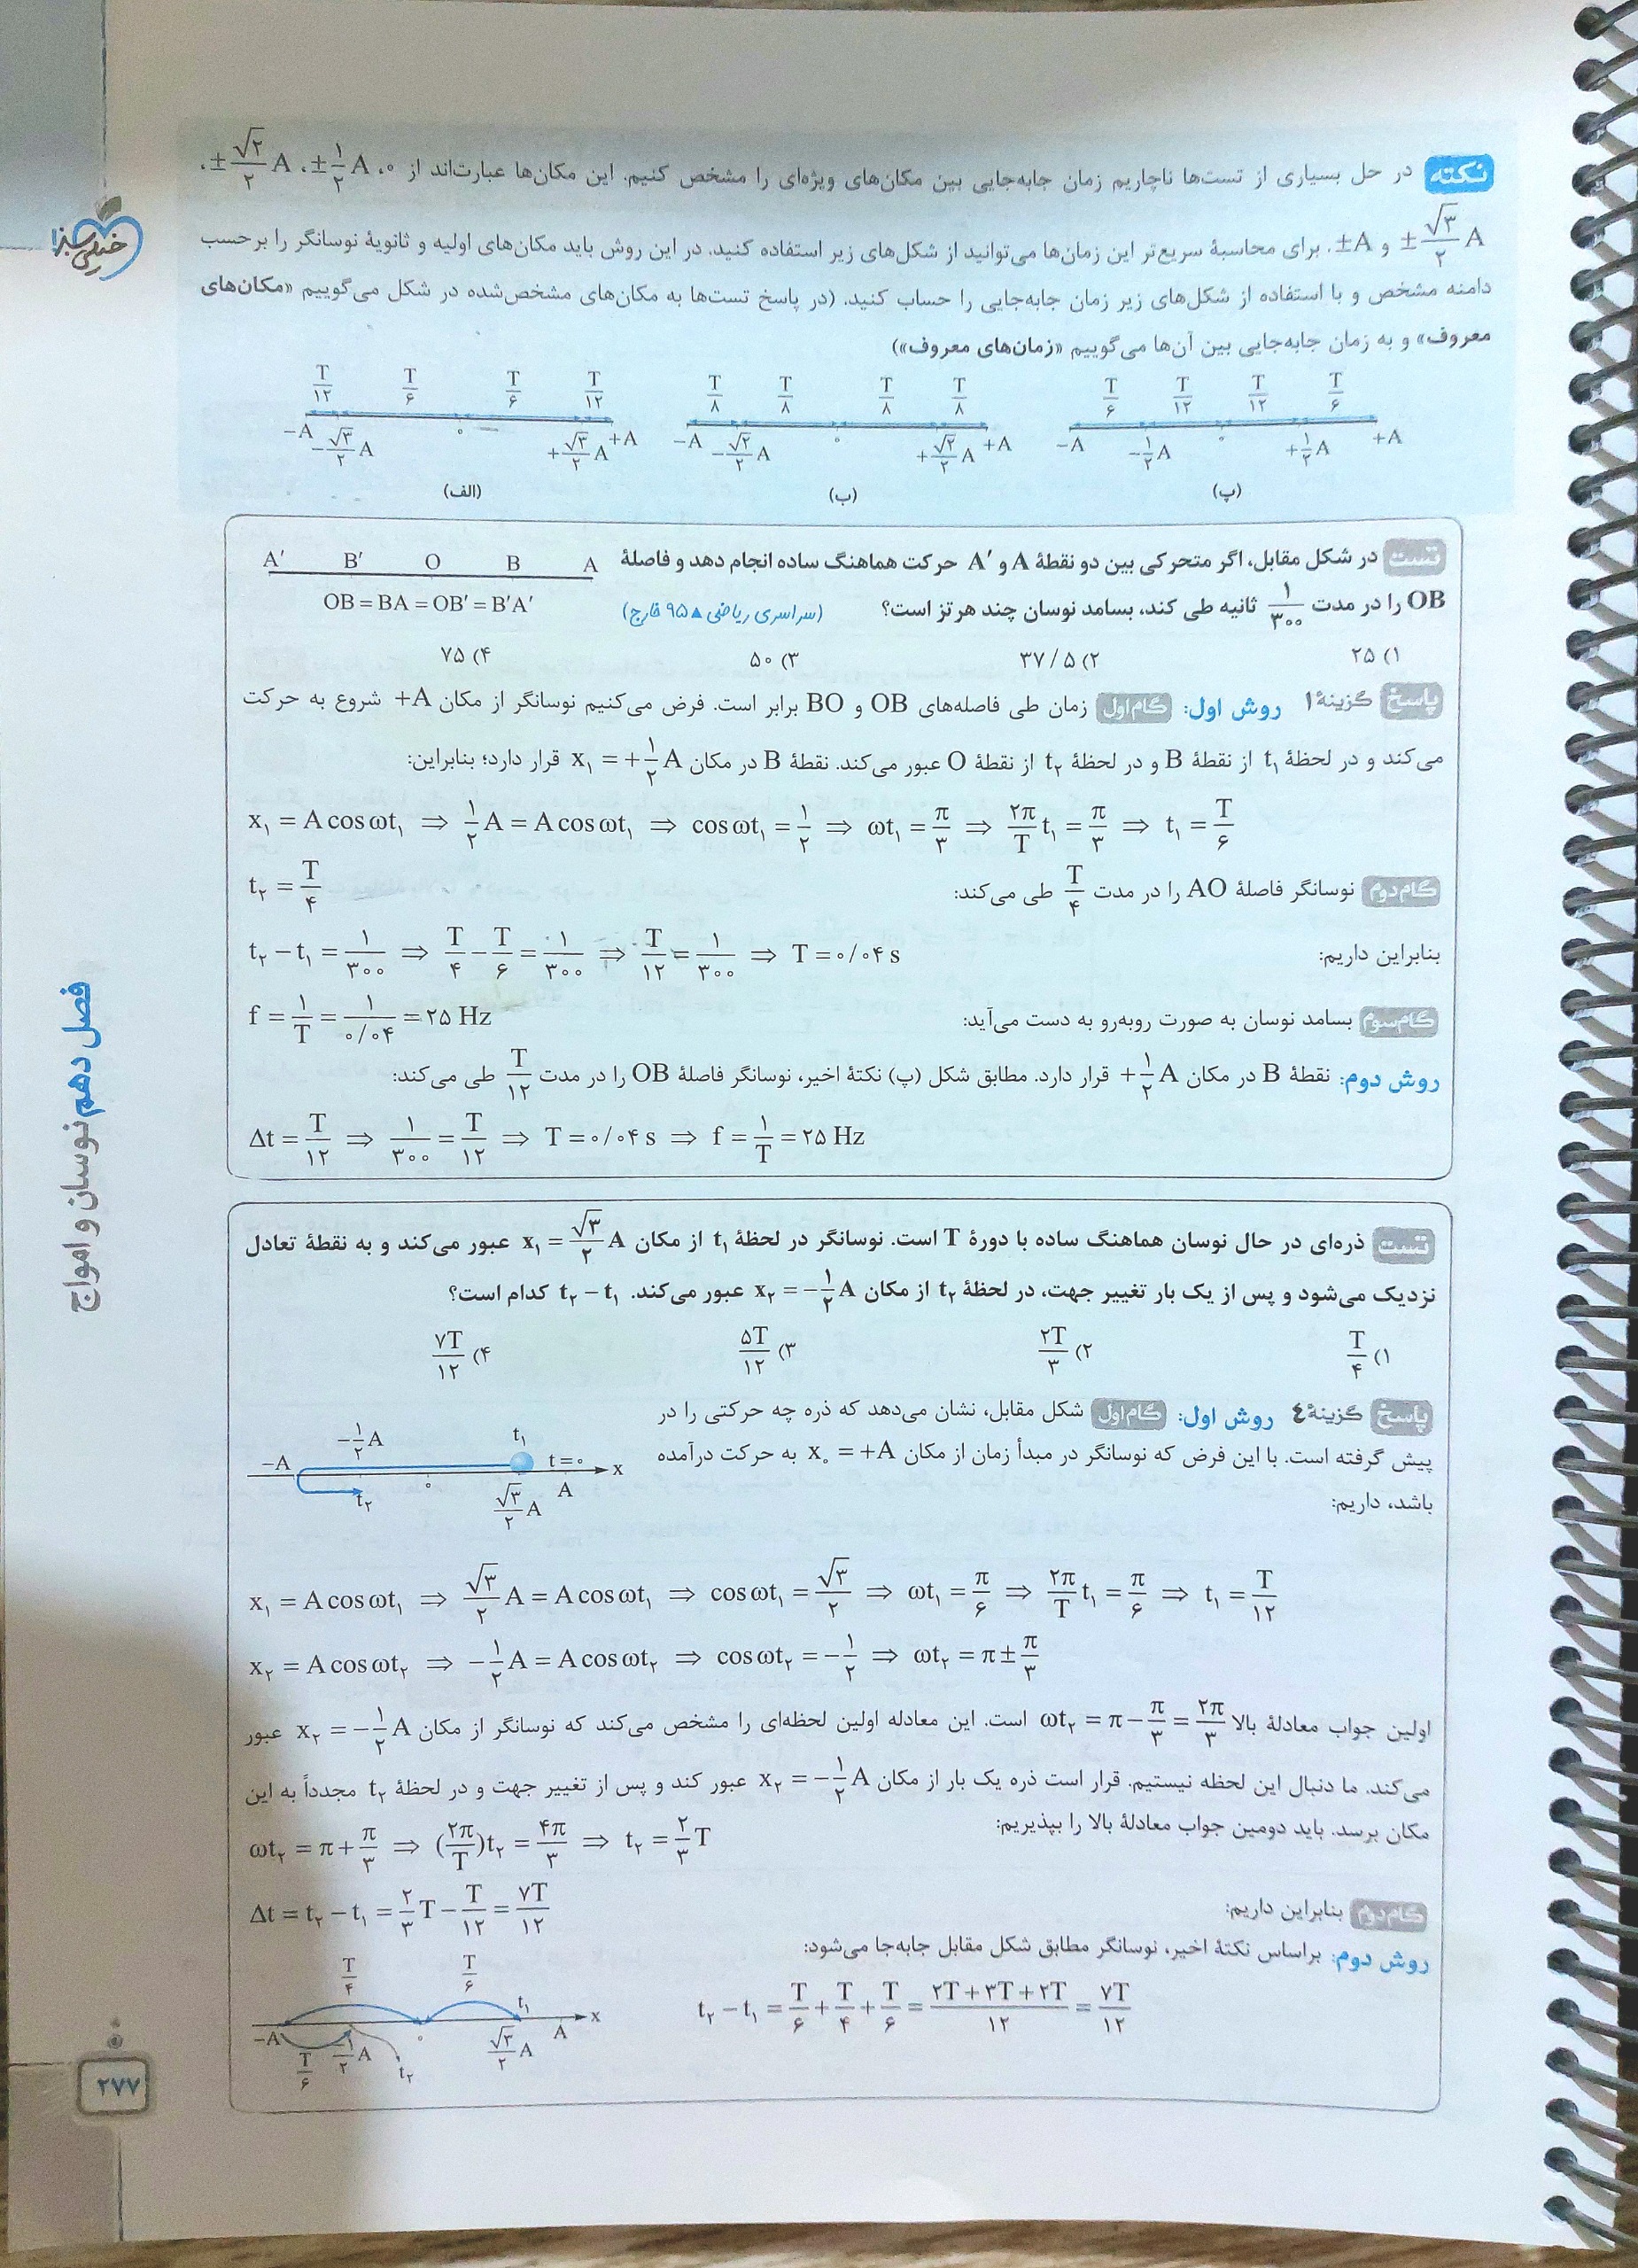 نکته در حل بسیاری از تست‌ها ناچاریم زمان جابه‌جایی بین مکان‌های ویژه‌ای را مشخص کنیم. این مکان‌ها عبارت‌اند از ۰، ±۱/۲ A، ±√۲/۲ A،
±√۳/۲ A و ±A. برای محاسبهٔ سریع‌تر این زمان‌ها می‌توانید از شکل‌های زیر استفاده کنید. در این روش باید مکان‌های اولیه و ثانویهٔ نوسانگر را برحسب
دامنه مشخص و با استفاده از شکل‌های زیر زمان جابه‌جایی را حساب کنید. (در پاسخ تست‌ها به مکان‌های مشخص‌شده در شکل می‌گوییم «مکان‌های
معروف» و به زمان جابه‌جایی بین آن‌ها می‌گوییم «زمان‌های معروف»)
T/۱۲ T/۶ T/۶ T/۱۲
−A −√۳/۲ A ۰ +√۳/۲ A +A
(الف)
T/۸ T/۸ T/۸ T/۸
−A −√۲/۲ A ۰ +√۲/۲ A +A
(ب)
T/۶ T/۱۲ T/۱۲ T/۶
−A −۱/۲ A ۰ +۱/۲ A +A
(پ)
تست در شکل مقابل، اگر متحرکی بین دو نقطهٔ A و A′ حرکت هماهنگ ساده انجام دهد و فاصلهٔ
OB را در مدت ۱/۳۰۰ ثانیه طی کند، بسامد نوسان چند هرتز است؟ (سراسری ریاضی ▲ ۹۵ خارج)
A′ B′ O B A
OB = BA = OB′ = B′A′
۱) ۲۵ ۲) ۳۷/۵ ۳) ۵۰ ۴) ۷۵
پاسخ گزینهٔ ۱ روش اول: گام اول زمان طی فاصله‌های OB و BO برابر است. فرض می‌کنیم نوسانگر از مکان +A شروع به حرکت
می‌کند و در لحظهٔ t₁ از نقطهٔ B و در لحظهٔ t₂ از نقطهٔ O عبور می‌کند. نقطهٔ B در مکان x₁ = +۱/۲ A قرار دارد؛ بنابراین:
x₁ = A cos ωt₁ ⇒ ۱/۲ A = A cos ωt₁ ⇒ cos ωt₁ = ۱/۲ ⇒ ωt₁ = π/۳ ⇒ ۲π/T t₁ = π/۳ ⇒ t₁ = T/۶
گام دوم نوسانگر فاصلهٔ AO را در مدت T/۴ طی می‌کند:
t₂ = T/۴
بنابراین داریم:
t₂ − t₁ = ۱/۳۰۰ ⇒ T/۴ − T/۶ = ۱/۳۰۰ ⇒ T/۱۲ = ۱/۳۰۰ ⇒ T = ۰/۰۴ s
گام سوم بسامد نوسان به صورت روبه‌رو به دست می‌آید:
f = ۱/T = ۱/۰/۰۴ = ۲۵ Hz
روش دوم: نقطهٔ B در مکان +۱/۲ A قرار دارد. مطابق شکل (پ) نکتهٔ اخیر، نوسانگر فاصلهٔ OB را در مدت T/۱۲ طی می‌کند:
Δt = T/۱۲ ⇒ ۱/۳۰۰ = T/۱۲ ⇒ T = ۰/۰۴ s ⇒ f = ۱/T = ۲۵ Hz
تست ذره‌ای در حال نوسان هماهنگ ساده با دورهٔ T است. نوسانگر در لحظهٔ t₁ از مکان x₁ = √۳/۲ A عبور می‌کند و به نقطهٔ تعادل
نزدیک می‌شود و پس از یک بار تغییر جهت، در لحظهٔ t₂ از مکان x₂ = −۱/۲ A عبور می‌کند. t₂ − t₁ کدام است؟
۱) T/۴ ۲) ۲T/۳ ۳) ۵T/۱۲ ۴) ۷T/۱۲
پاسخ گزینهٔ ۴ روش اول: گام اول شکل مقابل، نشان می‌دهد که ذره چه حرکتی را در
پیش گرفته است. با این فرض که نوسانگر در مبدأ زمان از مکان x₀ = +A به حرکت درآمده
باشد، داریم:
−A −۱/۲ A t₁ t = ۰ x
t₂ ۰ √۳/۲ A A
x₁ = A cos ωt₁ ⇒ √۳/۲ A = A cos ωt₁ ⇒ cos ωt₁ = √۳/۲ ⇒ ωt₁ = π/۶ ⇒ ۲π/T t₁ = π/۶ ⇒ t₁ = T/۱۲
x₂ = A cos ωt₂ ⇒ −۱/۲ A = A cos ωt₂ ⇒ cos ωt₂ = −۱/۲ ⇒ ωt₂ = π ± π/۳
اولین جواب معادلهٔ بالا ωt₂ = π − π/۳ = ۲π/۳ است. این معادله اولین لحظه‌ای را مشخص می‌کند که نوسانگر از مکان x₂ = −۱/۲ A عبور
می‌کند. ما دنبال این لحظه نیستیم. قرار است ذره یک بار از مکان x₂ = −۱/۲ A عبور کند و پس از تغییر جهت و در لحظهٔ t₂ مجدداً به این
مکان برسد. باید دومین جواب معادلهٔ بالا را بپذیریم:
ωt₂ = π + π/۳ ⇒ (۲π/T)t₂ = ۴π/۳ ⇒ t₂ = ۲/۳ T
گام دوم بنابراین داریم:
Δt = t₂ − t₁ = ۲/۳ T − T/۱۲ = ۷T/۱۲
روش دوم: براساس نکتهٔ اخیر، نوسانگر مطابق شکل مقابل جابه‌جا می‌شود:
t₂ − t₁ = T/۶ + T/۴ + T/۶ = (۲T + ۳T + ۲T)/۱۲ = ۷T/۱۲
T/۴ T/۶ t₁ x
−A −۱/۲ A ۰ √۳/۲ A A
T/۶ t₂
خیلی سبز
فصل دهم نوسان و امواج
۲۷۷